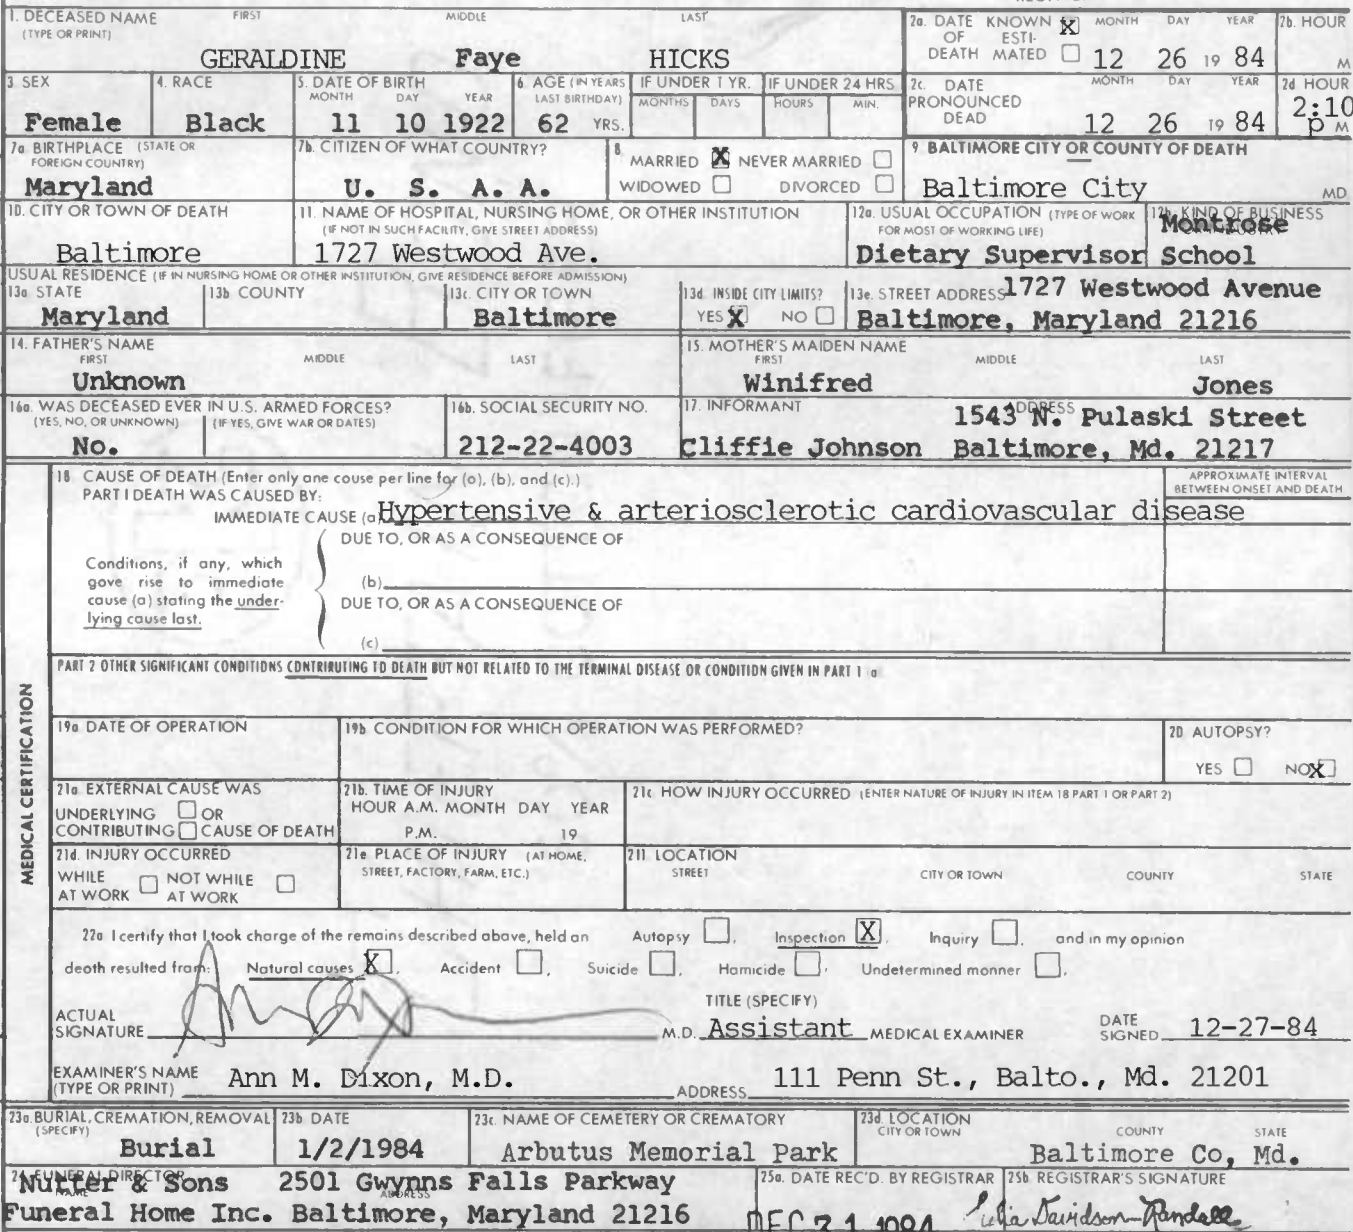 1. DECEASED NAME (TYPE OR PRINT) FIRST MIDDLE LAST
GERALDINE Faye HICKS
2a. DATE OF DEATH KNOWN X ESTIMATED MONTH DAY YEAR
12 26 19 84
2b. HOUR M
3 SEX
Female
4. RACE
Black
5. DATE OF BIRTH MONTH DAY YEAR
11 10 1922
6 AGE (IN YEARS LAST BIRTHDAY)
62 YRS.
IF UNDER 1 YR. MONTHS DAYS
IF UNDER 24 HRS HOURS MIN.
2c. DATE PRONOUNCED DEAD MONTH DAY YEAR
12 26 19 84
2d HOUR
2:10 P M
7a BIRTHPLACE (STATE OR FOREIGN COUNTRY)
Maryland
7b. CITIZEN OF WHAT COUNTRY?
U. S. A. A.
8. MARRIED X NEVER MARRIED
WIDOWED DIVORCED
9 BALTIMORE CITY OR COUNTY OF DEATH
Baltimore City MD.
10. CITY OR TOWN OF DEATH
Baltimore
11. NAME OF HOSPITAL, NURSING HOME, OR OTHER INSTITUTION
(IF NOT IN SUCH FACILITY, GIVE STREET ADDRESS)
1727 Westwood Ave.
12a. USUAL OCCUPATION (TYPE OF WORK FOR MOST OF WORKING LIFE)
Dietary Supervisor
12b. KIND OF BUSINESS
Montrose
School
USUAL RESIDENCE (IF IN NURSING HOME OR OTHER INSTITUTION, GIVE RESIDENCE BEFORE ADMISSION)
13a STATE
Maryland
13b COUNTY
13c. CITY OR TOWN
Baltimore
13d. INSIDE CITY LIMITS?
YES X NO
13e. STREET ADDRESS 1727 Westwood Avenue
Baltimore, Maryland 21216
14. FATHER'S NAME
FIRST MIDDLE LAST
Unknown
15. MOTHER'S MAIDEN NAME
FIRST MIDDLE LAST
Winifred Jones
16a. WAS DECEASED EVER IN U.S. ARMED FORCES?
(YES, NO, OR UNKNOWN) (IF YES, GIVE WAR OR DATES)
No.
16b. SOCIAL SECURITY NO.
212-22-4003
17. INFORMANT ADDRESS
1543 N. Pulaski Street
Cliffie Johnson Baltimore, Md. 21217
MEDICAL CERTIFICATION
18 CAUSE OF DEATH (Enter only one cause per line for (a), (b), and (c).)
PART I DEATH WAS CAUSED BY:
APPROXIMATE INTERVAL
BETWEEN ONSET AND DEATH
IMMEDIATE CAUSE (a) Hypertensive & arteriosclerotic cardiovascular disease
DUE TO, OR AS A CONSEQUENCE OF
Conditions, if any, which
gave rise to immediate
cause (a) stating the under-
lying cause last.
(b)
DUE TO, OR AS A CONSEQUENCE OF
(c)
PART 2 OTHER SIGNIFICANT CONDITIONS CONTRIBUTING TO DEATH BUT NOT RELATED TO THE TERMINAL DISEASE OR CONDITION GIVEN IN PART 1 a
19a DATE OF OPERATION
19b CONDITION FOR WHICH OPERATION WAS PERFORMED?
20 AUTOPSY?
YES NO X
21a EXTERNAL CAUSE WAS
UNDERLYING OR
CONTRIBUTING CAUSE OF DEATH
21b. TIME OF INJURY
HOUR A.M. MONTH DAY YEAR
P.M. 19
21c HOW INJURY OCCURRED (ENTER NATURE OF INJURY IN ITEM 18 PART 1 OR PART 2)
21d. INJURY OCCURRED
WHILE AT WORK NOT WHILE AT WORK
21e PLACE OF INJURY (AT HOME, STREET, FACTORY, FARM, ETC.)
21f. LOCATION
STREET CITY OR TOWN COUNTY STATE
22a I certify that I took charge of the remains described above, held an Autopsy , Inspection X , Inquiry , and in my opinion
death resulted from: Natural causes X , Accident , Suicide , Homicide , Undetermined manner .
TITLE (SPECIFY)
ACTUAL SIGNATURE M.D. Assistant MEDICAL EXAMINER DATE SIGNED 12-27-84
EXAMINER'S NAME (TYPE OR PRINT) Ann M. Dixon, M.D. ADDRESS 111 Penn St., Balto., Md. 21201
23a. BURIAL, CREMATION, REMOVAL (SPECIFY)
Burial
23b DATE
1/2/1984
23c. NAME OF CEMETERY OR CREMATORY
Arbutus Memorial Park
23d LOCATION
CITY OR TOWN COUNTY STATE
Baltimore Co, Md.
24 FUNERAL DIRECTOR NAME ADDRESS
Nutter & Sons 2501 Gwynns Falls Parkway
Funeral Home Inc. Baltimore, Maryland 21216
25a. DATE REC'D. BY REGISTRAR
DEC 31 1984
25b REGISTRAR'S SIGNATURE
Julia Davidson-Randall